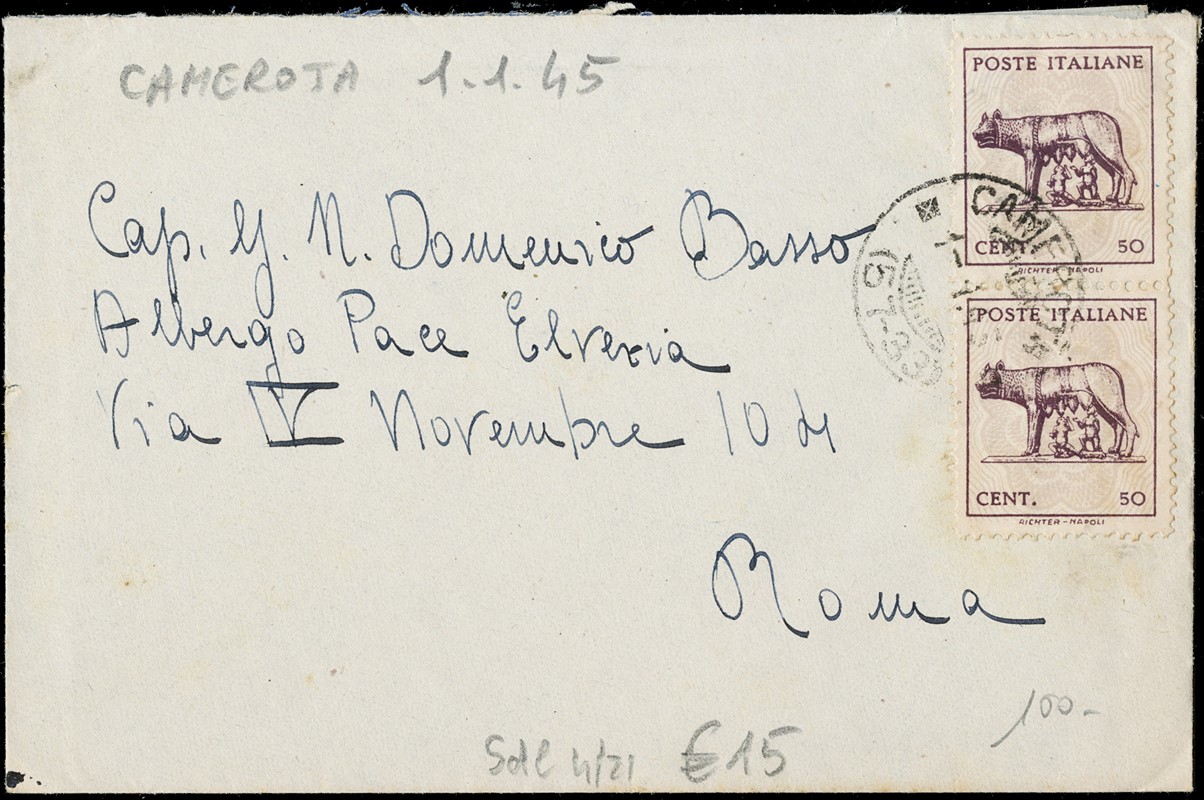 CAMEROTA 1.1.45
POSTE ITALIANE
CENT. 50
RICHTER-NAPOLI
CAMEROTA
(57-33)
POSTE ITALIANE
CENT. 50
RICHTER-NAPOLI
Cap. G. N. Domenico Basso
Albergo Pace Elvezia
Via IV Novembre 104
Roma
100-
€15